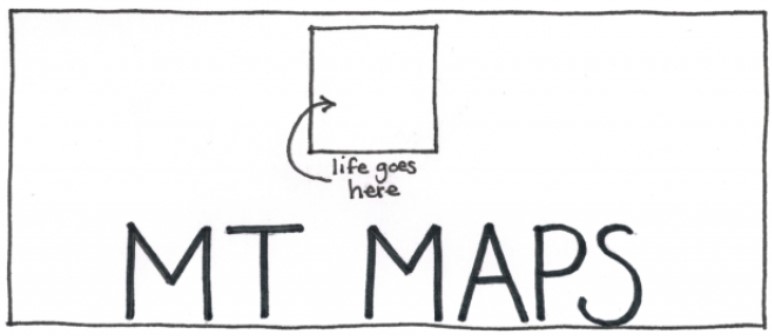 life goes
here
MT MAPS